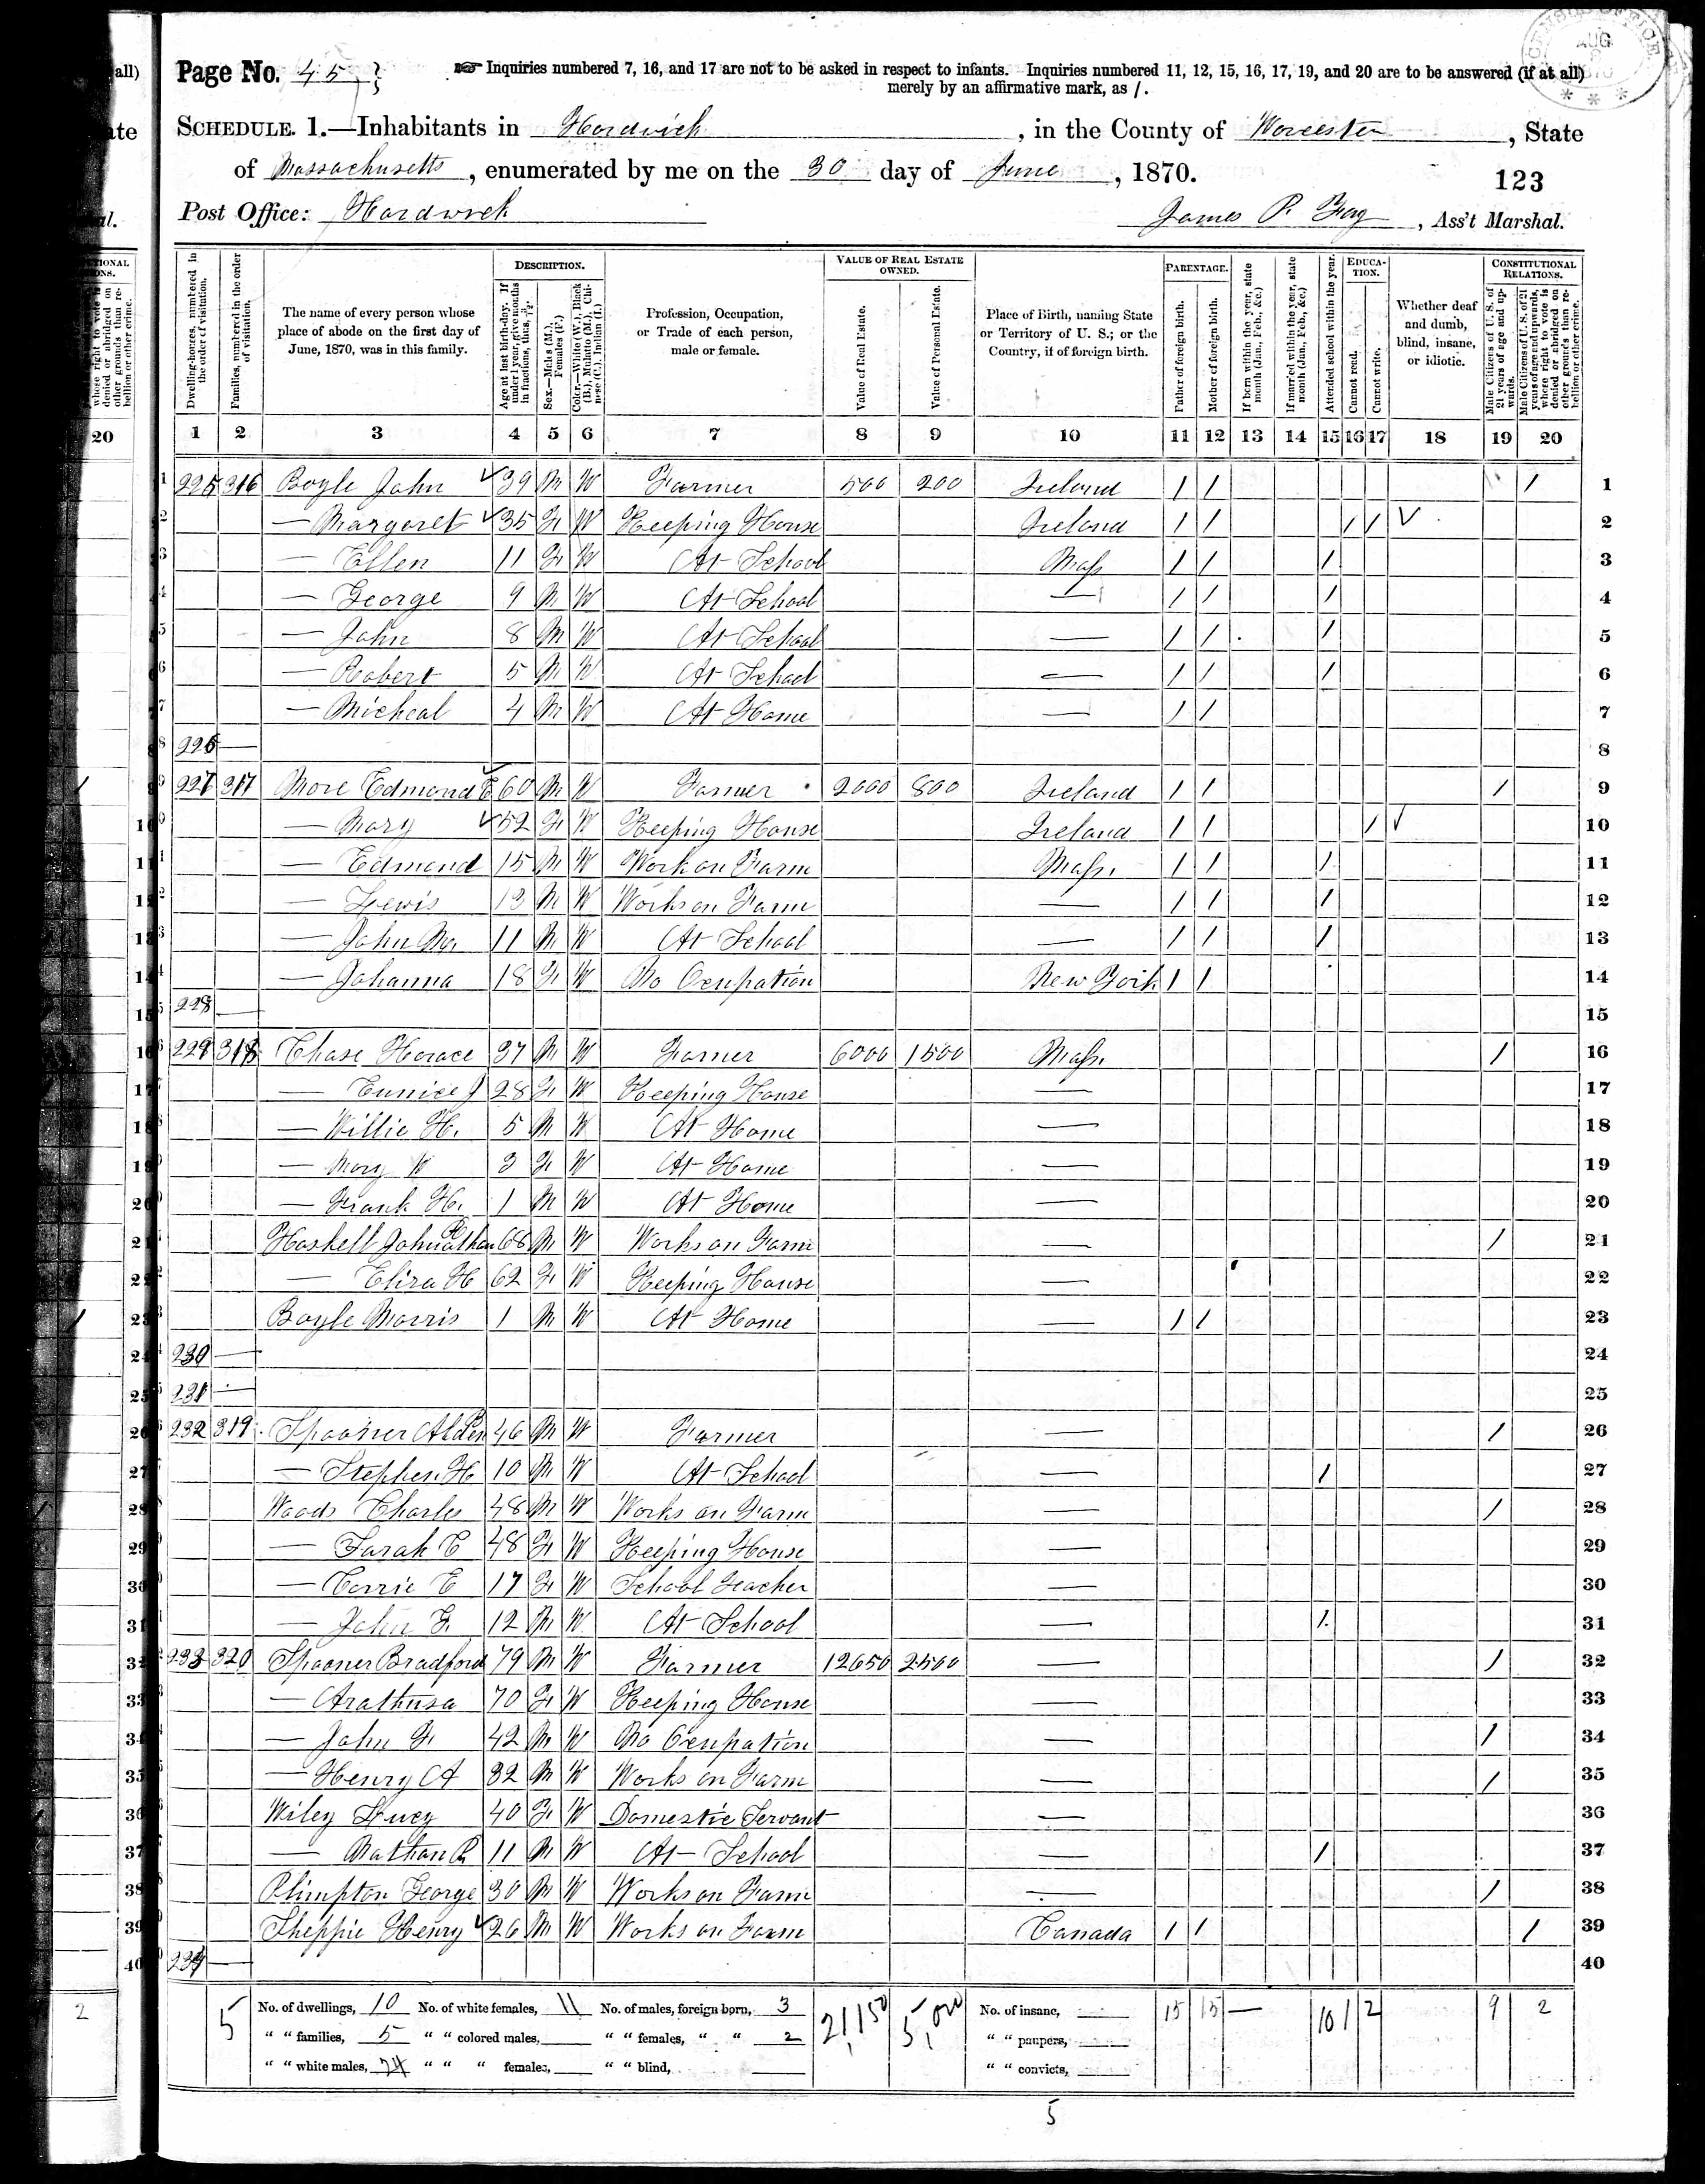 Page No. 45
Inquiries numbered 7, 16, and 17 are not to be asked in respect to infants. Inquiries numbered 11, 12, 15, 16, 17, 19, and 20 are to be answered (if at all)
merely by an affirmative mark, as /.
SCHEDULE. 1.—Inhabitants in Hardwick, in the County of Worcester, State
of Massachusetts, enumerated by me on the 30 day of June, 1870.
123
Post Office: Hardwick James P. Fay, Ass't Marshal.
Dwelling-houses, numbered in the order of visitation.
Families, numbered in the order of visitation.
The name of every person whose place of abode on the first day of June, 1870, was in this family.
DESCRIPTION.
Age at last birth-day. If under 1 year, give months in fractions, thus, 3/12.
Sex.—Males (M.), Females (F.)
Color.—White (W.), Black (B.), Mulatto (M.), Chinese (C.), Indian (I.)
Profession, Occupation, or Trade of each person, male or female.
VALUE OF REAL ESTATE OWNED.
Value of Real Estate.
Value of Personal Estate.
Place of Birth, naming State or Territory of U. S.; or the Country, if of foreign birth.
PARENTAGE.
Father of foreign birth.
Mother of foreign birth.
If born within the year, state month (Jan., Feb., &c.)
If married within the year, state month (Jan., Feb., &c.)
Attended school within the year.
EDUCATION.
Cannot read.
Cannot write.
Whether deaf and dumb, blind, insane, or idiotic.
CONSTITUTIONAL RELATIONS.
Male Citizens of U. S. of 21 years of age and upwards.
Male Citizens of U. S. of 21 years of age and upwards, where right to vote is denied or abridged on other grounds than rebellion or other crime.
1 2 3 4 5 6 7 8 9 10 11 12 13 14 15 16 17 18 19 20
1 225 316 Boyle John 39 M W Farmer 500 200 Ireland / / / 1
2 — Margaret 35 F W Keeping House Ireland / / / / 2
3 — Ellen 11 F W At School Mass / / / 3
4 — George 9 M W At School — / / / 4
5 — John 8 M W At School — / / / 5
6 — Robert 5 M W At School — / / / 6
7 — Micheal 4 M W At Home — / / 7
8 226 — 8
9 227 317 More Edmond E 60 M W Farmer 2000 800 Ireland / / / 9
10 — Mary 52 F W Keeping House Ireland / / / 10
11 — Edmond 15 M W Work on Farm Mass. / / / 11
12 — Lewis 13 M W Works on Farm — / / / 12
13 — John M. 11 M W At School — / / / 13
14 — Johanna 18 F W No Ocupation New York / / 14
15 228 — 15
16 229 318 Chase Horace 37 M W Farmer 6000 1500 Mass. / 16
17 — Eunice J 28 F W Keeping House — 17
18 — Willie H. 5 M W At Home — 18
19 — Mary W 3 F W At Home — 19
20 — Frank H. 1 M W At Home — 20
21 Haskell Johnathan 68 M W Works on Farm — / 21
22 — Eliza H 62 F W Keeping House — 22
23 Boyle Morris 1 M W At Home — / / 23
24 230 — 24
25 231 — 25
26 232 319 Spooner Alden 46 M W Farmer — / 26
27 — Stephen H 10 M W At School — / 27
28 Woods Charles 48 M W Works on Farm — / 28
29 — Sarah C 48 F W Keeping House — 29
30 — Carrie E 17 F W School Teacher — 30
31 — John F. 12 M W At School — / 31
32 233 320 Spooner Bradford 79 M W Farmer 12650 2500 — / 32
33 — Arathusa 70 F W Keeping House — 33
34 — John F 42 M W No Ocupation — / 34
35 — Henry A 32 M W Works on Farm — / 35
36 Wiley Lucy 40 F W Domestic Servant — 36
37 — Nathan R 11 M W At School — / 37
38 Plimpton George 30 M W Works on Farm — / 38
39 Sheppie Henry 26 M W Works on Farm Canada / / / 39
40 234 — 40
5 No. of dwellings, 10 No. of white females, 11 No. of males, foreign born, 3 21,150 5,000 No. of insane, 15 15 — 10 1 2 9 2
" " families, 5 " " colored males, " " females, " " 2 " " paupers,
" " white males, 24 " " " females, " " blind, " " convicts,
5